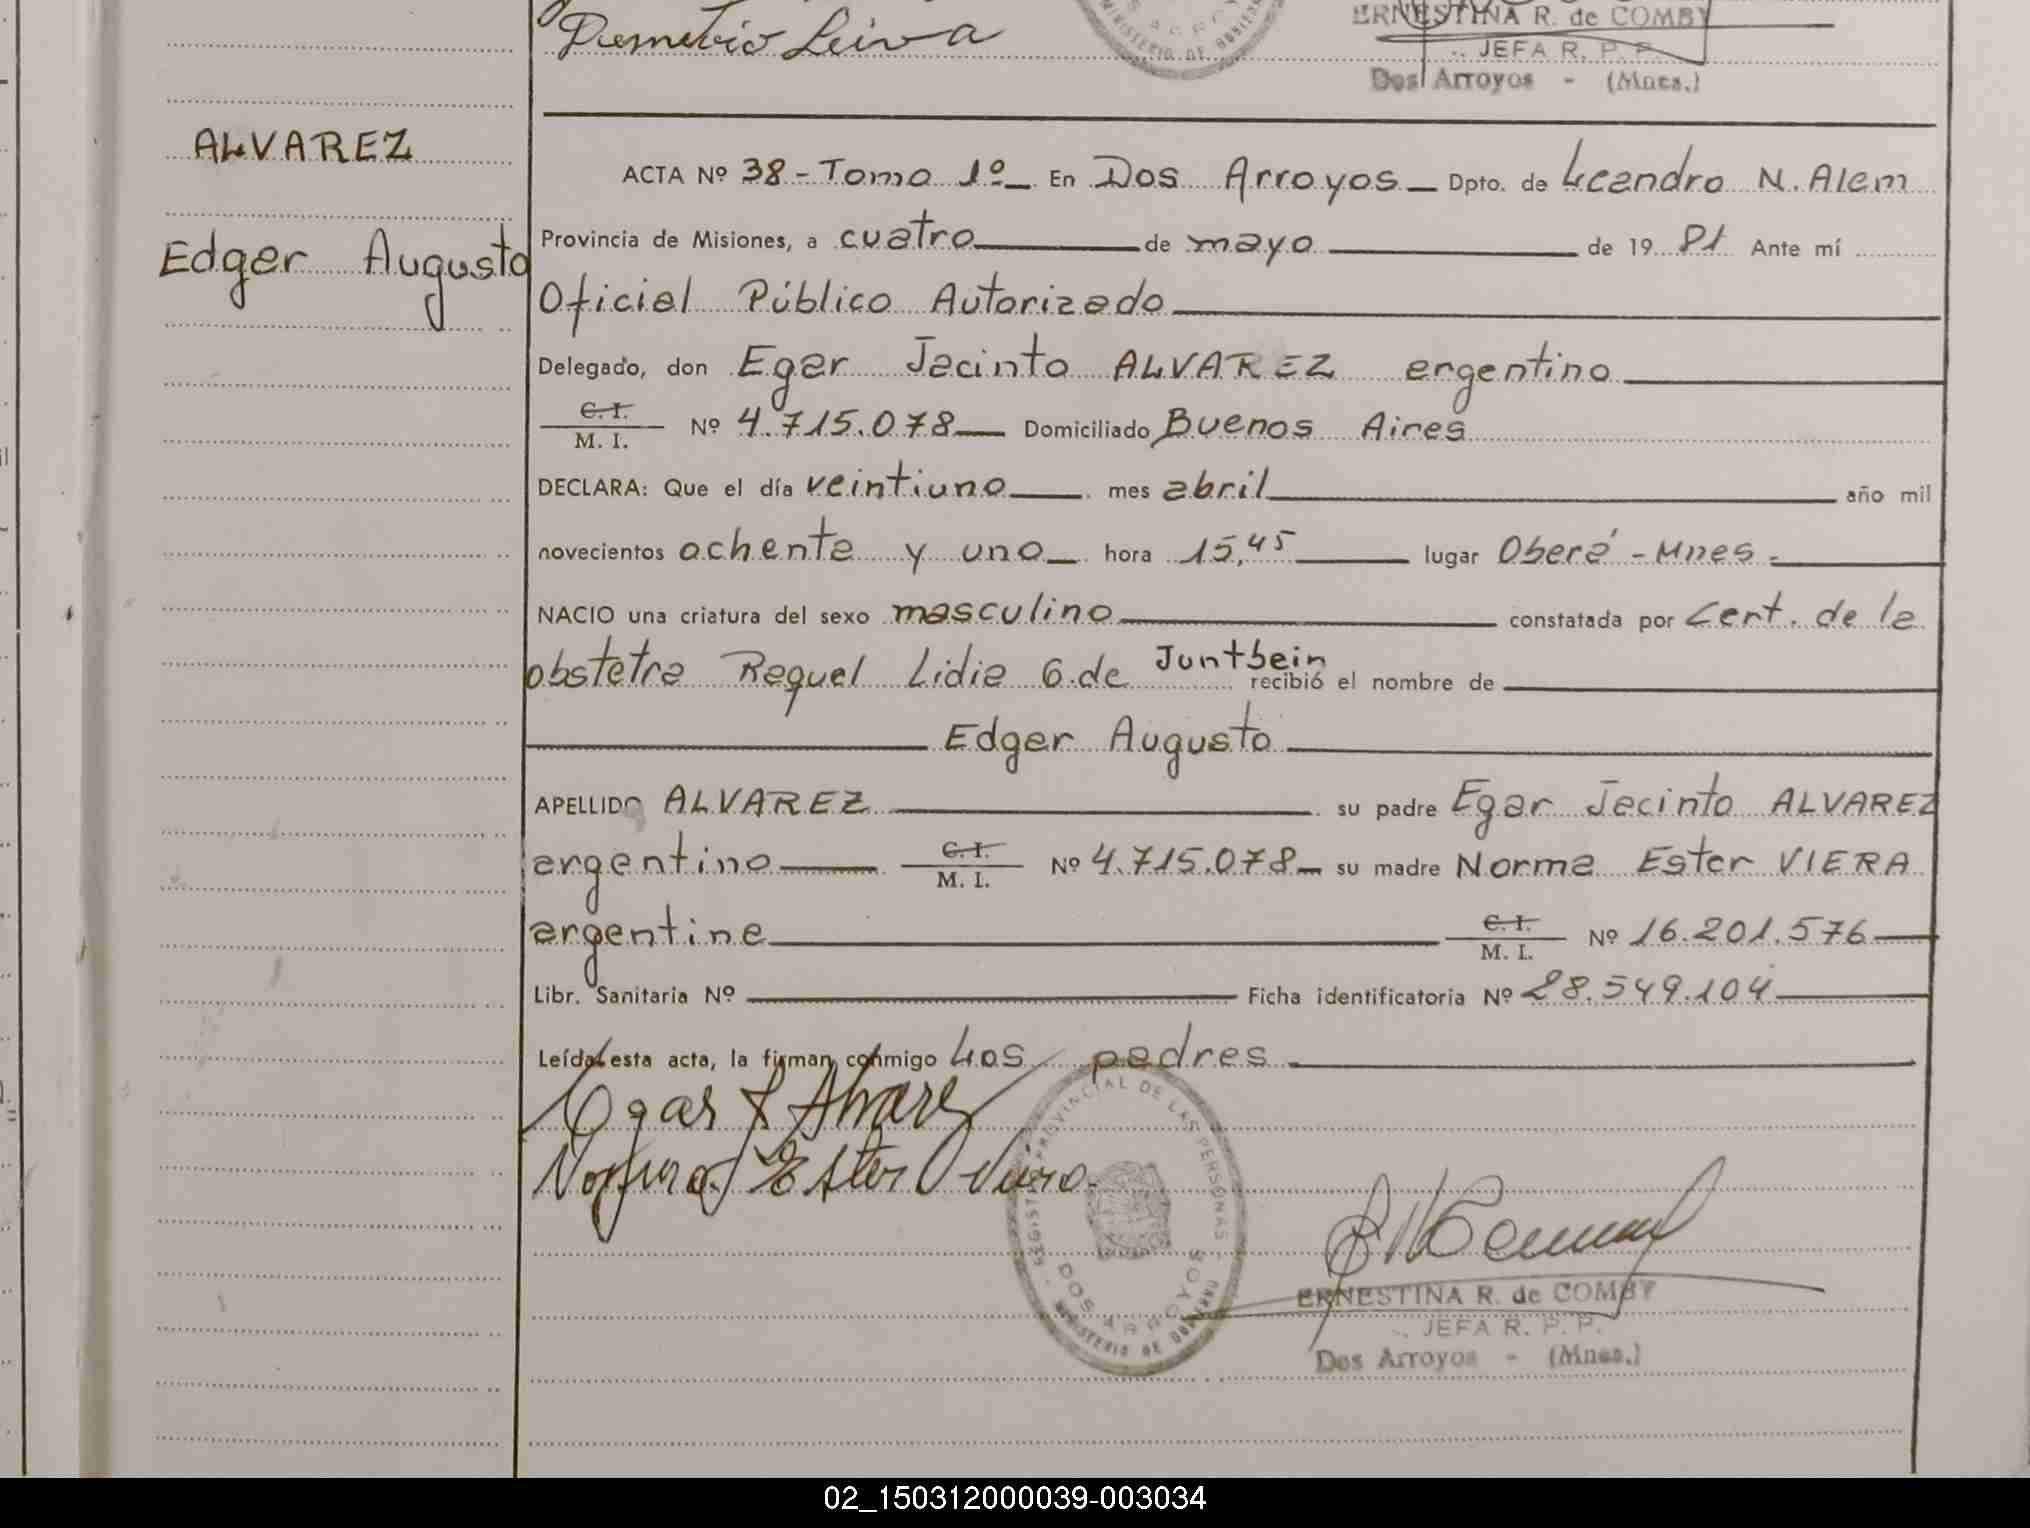 Demetrio Leiva
ERNESTINA R. de COMBY
JEFA R. P. P.
Dos Arroyos - (Mnes.)
ALVAREZ
Edgar Augusto
ACTA Nº 38 - Tomo 1º En Dos Arroyos Dpto. de Leandro N. Alem
Provincia de Misiones, a cuatro de mayo de 19 81 Ante mí
Oficial Público Autorizado
Delegado, don Egar Jacinto ALVAREZ argentino
C. I.
M. I. Nº 4.715.078 Domiciliado Buenos Aires
DECLARA: Que el día veintiuno mes abril año mil
novecientos ochenta y uno hora 15,45 lugar Oberá - Mnes.
NACIO una criatura del sexo masculino constatada por Cert. de la
obstetra Raquel Lidia G. de Juntbein recibió el nombre de
Edgar Augusto
APELLIDO ALVAREZ su padre Egar Jacinto ALVAREZ
argentino C. I.
M. I. Nº 4.715.078 su madre Norma Ester VIERA
argentina C. I.
M. I. Nº 16.201.576
Libr. Sanitaria Nº Ficha identificatoria Nº 28.549.104
Leída esta acta, la firman conmigo Los padres
Egar J Alvarez
Norma Ester Viera
REGISTRO PROVINCIAL DE LAS PERSONAS
DOS ARROYOS
MINISTERIO DE GOBIERNO
ERNESTINA R. de COMBY
JEFA R. P. P.
Dos Arroyos - (Mnes.)
02_150312000039-003034